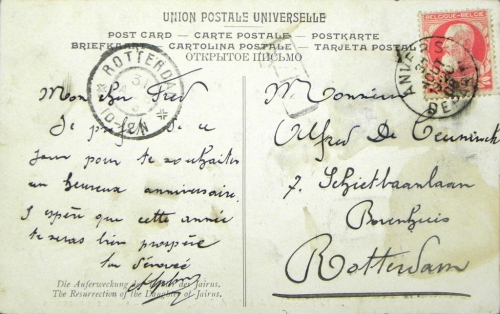 UNION POSTALE UNIVERSELLE
POST CARD — CARTE POSTALE — POSTKARTE
BRIEFKAART — CARTOLINA POSTALE — TARJETA POSTAL
ОТКРЫТОЕ ПИСЬМО
BELGIQUE-BELGIË
ANVERS
ROTTERDAM
10-12N
Mon cher Fred
Je ce
jour pour te souhaiter
un heureux anniversaire.
J espère que cette année
te seras bien prospère
ton dévoué
Monsieur
Alfred De Ceuninck
7. Schietbaanlaan
Bovenhuis
Rotterdam
Die Auferweckung der Tochter des Jairus.
The Resurrection of the Daughter of Jairus.